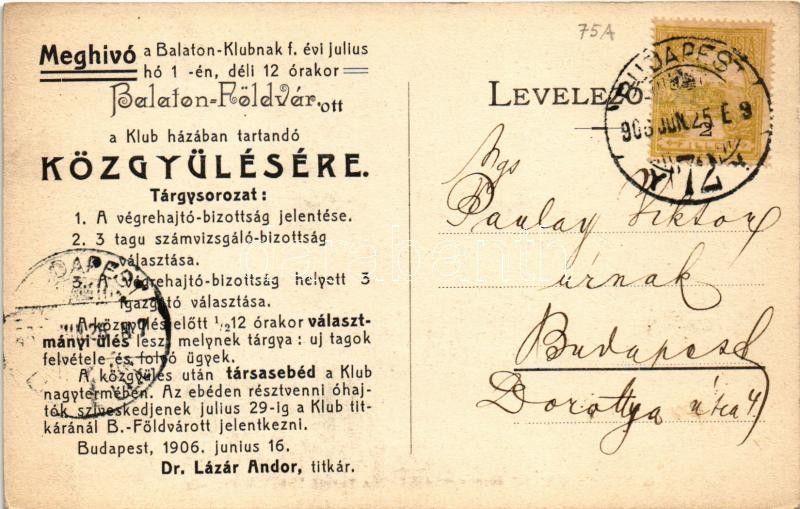 75A
Meghivó a Balaton-Klubnak f. évi julius
hó 1-én, déli 12 órakor
Balaton-Földvár.ott
a Klub házában tartandó
KÖZGYÜLÉSÉRE.
Tárgysorozat:
1. A végrehajtó-bizottság jelentése.
2. 3 tagu számvizsgáló-bizottság
választása.
3. A végrehajtó-bizottság helyett 3
igazgató választása.
A közgyülés előtt ½12 órakor választ-
mányi ülés lesz, melynek tárgya: uj tagok
felvétele és folyó ügyek.
A közgyülés után társasebéd a Klub
nagytermében. Az ebéden résztvenni óhaj-
tók sziveskedjenek julius 29-ig a Klub tit-
káránál B.-Földvárott jelentkezni.
Budapest, 1906. junius 16.
Dr. Lázár Andor, titkár.
LEVELEZŐ-
BUDAPEST
906 JUN. 25 E 9
72
2
FILLÉR
Ngs
Paulay Viktor
úrnak
Budapest
Dorottya utca 4.